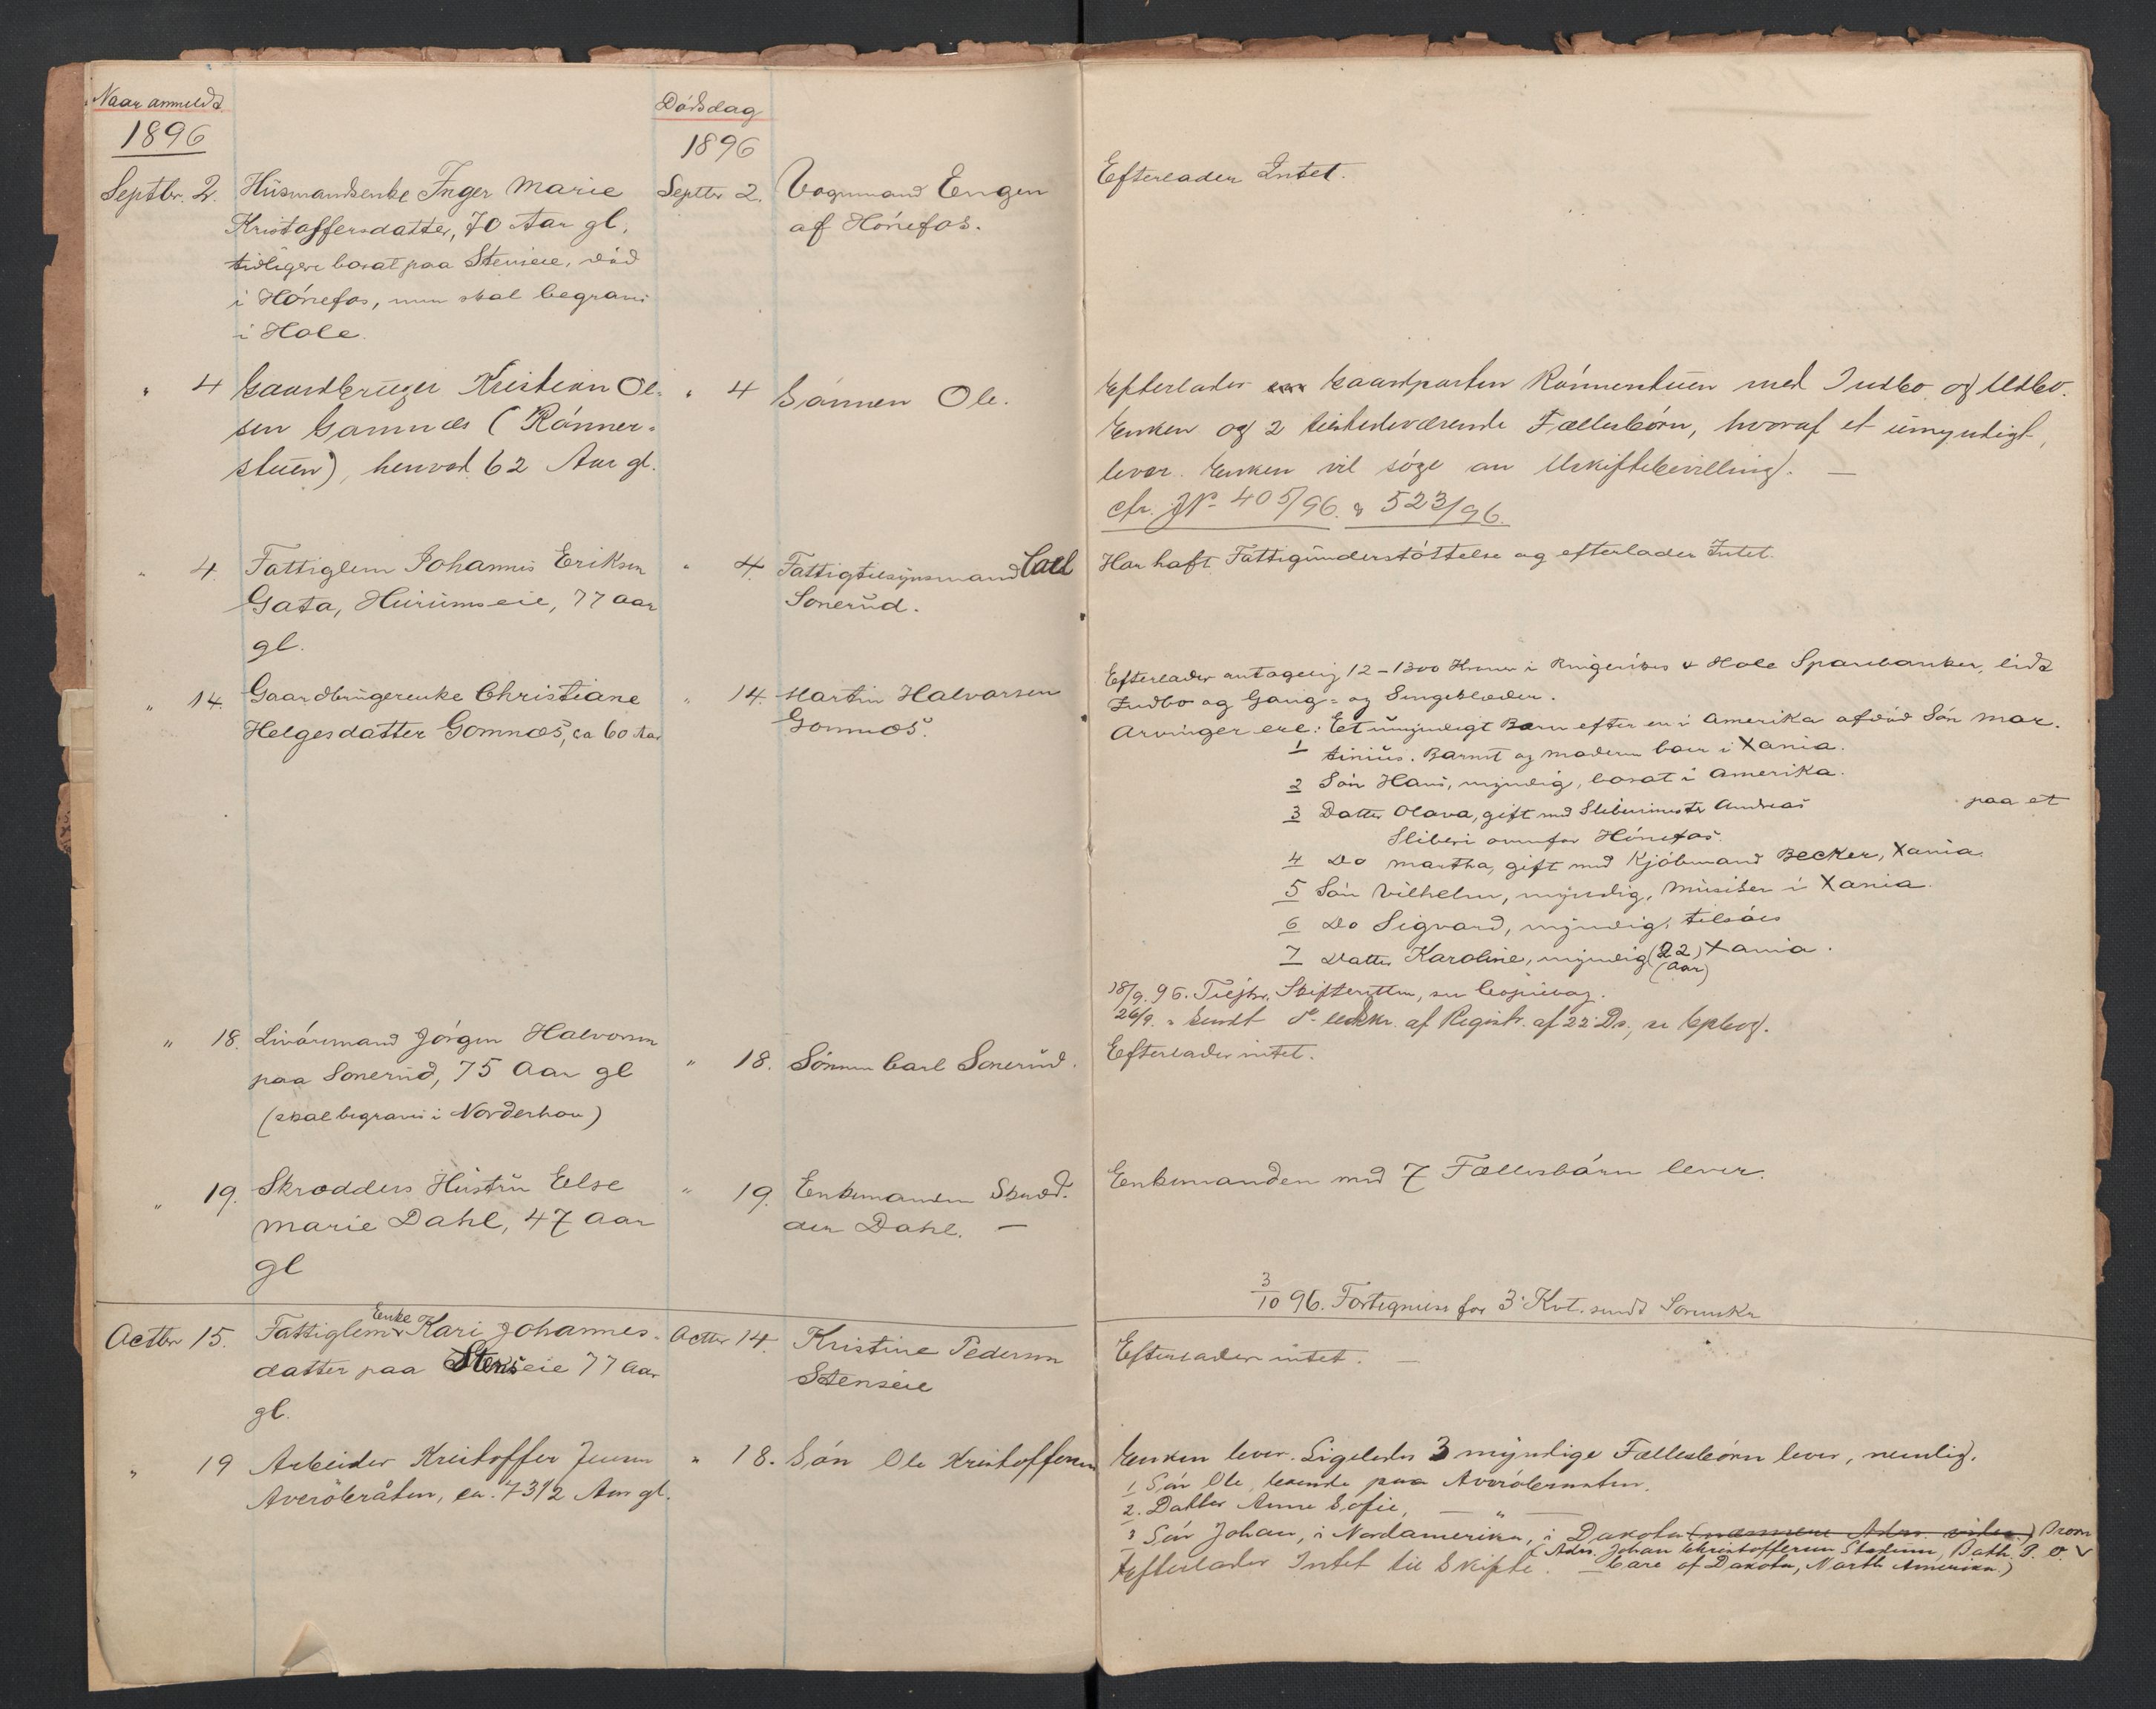 Naar anmeldt
1896
Dödsdag
1896
Septbr. 2. Husmandsenke Inger Marie
Kristoffersdatter, 70 Aar gl.
tidligere bosat paa Stenseie, död
i Hönefos, men skal begraves
i Hole
Septbr 2. Vognmand Engen
af Hönefos.
Efterlader Intet.
" 4 Gaardbruger Kristian Ol-
sen Gomnæs (Rönner-
stuen), henved 62 Aar gl.
" 4 Sönnen Ole.
Efterlader Gaardparten Rönnerstuen med Indbo og Udbo.
Enken og 2 tilstedeværende Fællesbörn, hvoraf et umyndigt,
lever. Enken vil söge om Uskiftebevilling. —
cfr. JN. 405/96. & 523/96.
" 4. Fattiglem Johannes Eriksen
Gata, Hurumseie, 77 Aar
gl.
" 4. Fattigtilsynsmand Carl
Sonerud.
Har haft Fattigunderstöttelse og efterlader Intet.
" 14. Gaardbrugerenke Christiane
Helgesdatter Gomnæs, ca 60 Aar
" 14. Martin Halvorsen
Gomnæs.
Efterlader antagelig 12-1300 Kroner i Ringeriges & Hole Sparebanker, lidt
Indbo og Gang- og Sengeklæder.
Arvinger ere: Et umyndigt Barn efter en i Amerika afdöd Sön Mar-
1 tinius. Barnet og Moderen boer i Xania.
2 Sön Hans, myndig, bosat i Amerika.
3 Datter Olava, gift med Slibemester Andreas paa et
Sliberi ovenfor Hönefos.
4 Do Martha, gift med Kjöbmand Becker, Xania.
5 Sön Vilhelm, myndig, Musiker i Xania.
6 Do Sigvard, myndig, tilsöes
7 Datter Karoline, myndig (22 Aar) Xania.
18/9. 96. Tilskr. Skifteretten, se Copiebog.
26/9. " Sendt do af Registr. af 22 Ds., se Cpbog.
" 18. Livörsmand Jörgen Halvorsen
paa Sonerud, 75 Aar gl
(skal begraves i Norderhov)
" 18. Sönnen Carl Sonerud.
Efterlader intet.
" 19. Skrædders Hustru Else
Marie Dahl, 47 Aar
gl
" 19. Enkemanden Skræd-
der Dahl. —
Enkemanden med 7 Fællesbörn lever.
3/10 96. Fortegnelse for 3' Kvt. sendt Sorenskr
Octbr 15. Fattiglem Enke Kari Johannes-
datter paa Stenseie 77 Aar
gl.
Octbr 14. Kristine Pedersen
Stenseie
Efterlader intet. —
" 19 Arbeider Kristoffer Jensen
Averöbråten, ca. 73 1/2 Aar gl.
" 18. Sön Ole Kristoffersen
Enken lever. Ligeledes 3 myndige Fællesbörn lever, nemlig.
1. Sön Ole, boende paa Averöbraaten.
2. Datter Anne Sofie, — " —
3 Sön Johan, i Nordamerika, i Dakota (nærmere Adrs. vides)
(Adrs. Johan Christoffersen Stadum, Bath P. O. Brown
Efterlader Intet til Skifte. — Care of Dakota, North Amerika)